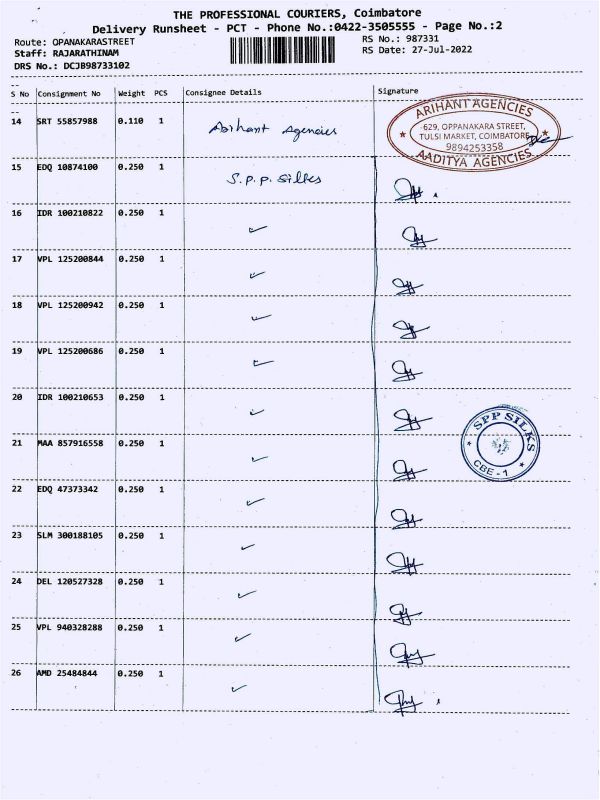 THE PROFESSIONAL COURIERS, Coimbatore
Delivery Runsheet - PCT - Phone No.:0422-3505555 - Page No.:2
Route: OPANAKARASTREET
RS No.: 987331
Staff: RAJARATHINAM
RS Date: 27-Jul-2022
DRS No.: DCJB98733102
S No Consignment No Weight PCS Consignee Details Signature
14 SRT 55857988 0.110 1 Arihant Agencies
ARIHANT AGENCIES
629, OPPANAKARA STREET,
TULSI MARKET, COIMBATORE
9894253358
AADITYA AGENCIES
15 EDQ 10874100 0.250 1 S.P.P. Silks
16 IDR 100210822 0.250 1 ✓
17 VPL 125200844 0.250 1 ✓
18 VPL 125200942 0.250 1 ✓
19 VPL 125200686 0.250 1 ✓
20 IDR 100210653 0.250 1 ✓
SPP SILKS
CBE - 1
21 MAA 857916558 0.250 1 ✓
22 EDQ 47373342 0.250 1 ✓
23 SLM 300188105 0.250 1 ✓
24 DEL 120527328 0.250 1 ✓
25 VPL 940328288 0.250 1 ✓
26 AMD 25484844 0.250 1 ✓